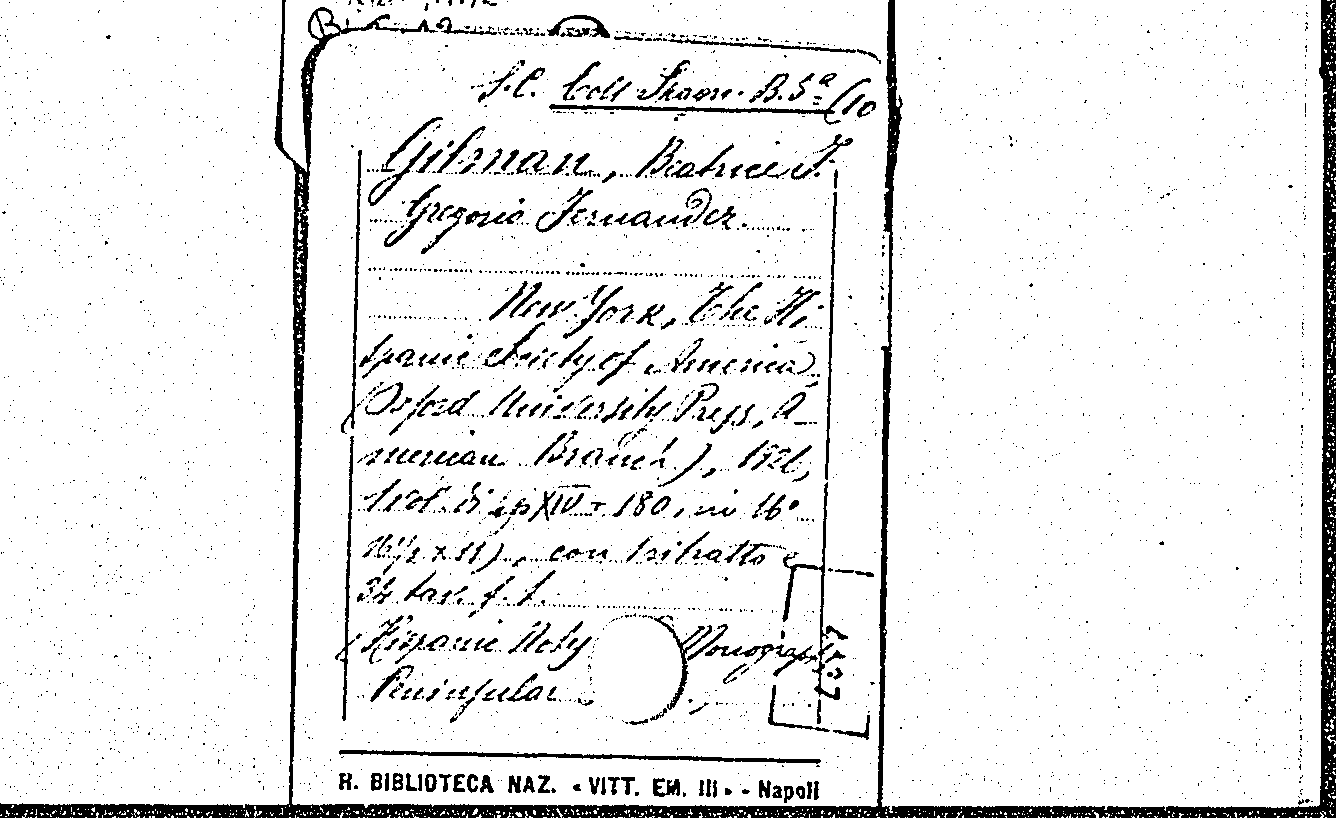 S.C. Coll. B. 5ª (10
Gilman, Beatrice I.
Gregorio Fernandez.
New York, The Hi
spanic Society of America
(Oxford University Press, A-
merican Branch), 1926,
1 vol. di pp XIV - 180, in 16°
16½ x 11), con ritratto e
34 tav. f. t.
(Hispanic Notes Monographs
Peninsular
R. BIBLIOTECA NAZ. « VITT. EM. III » - Napoli